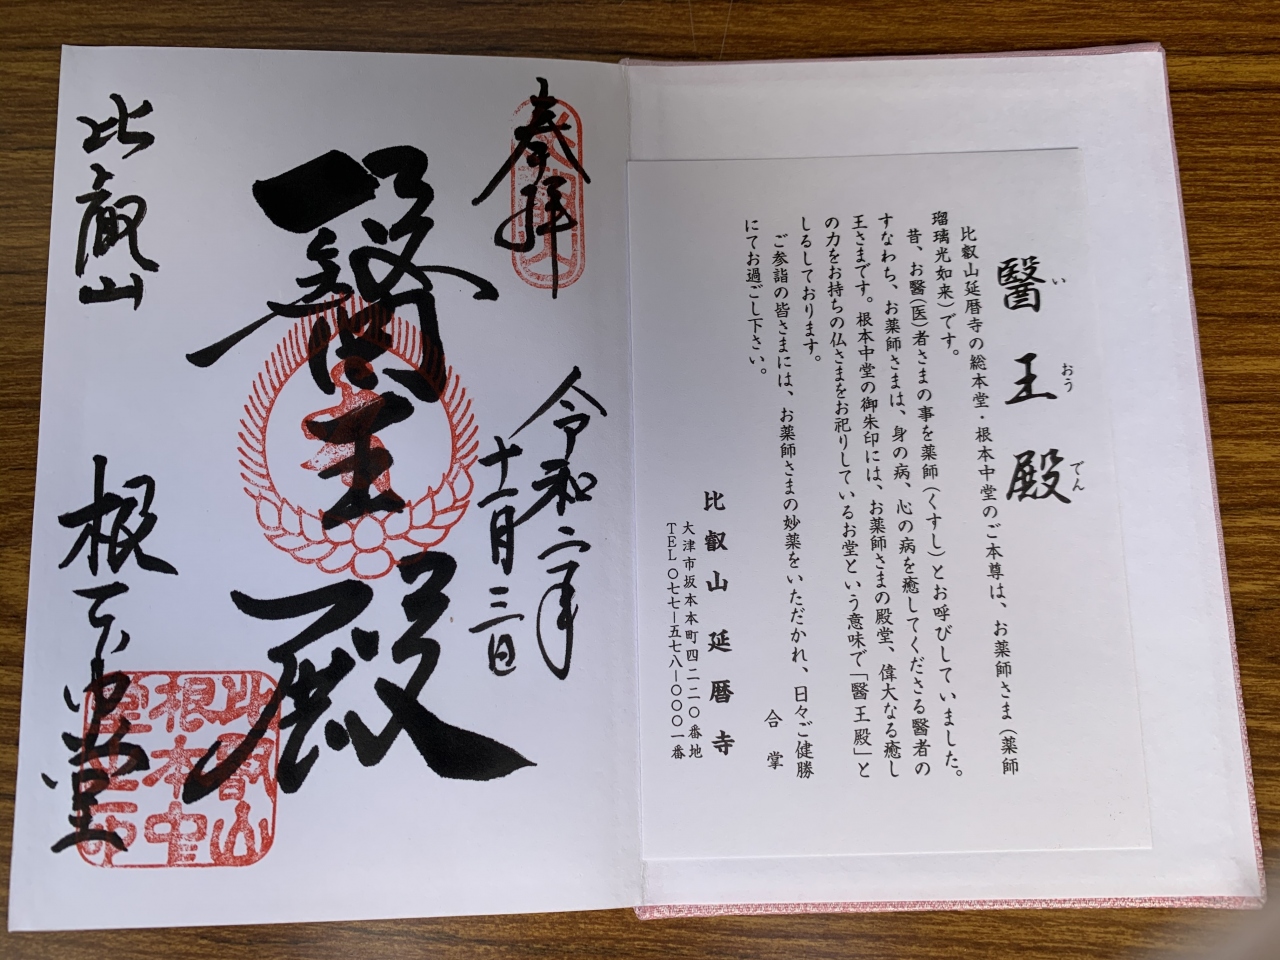 醫王殿
い おう でん
比叡山延暦寺の総本堂・根本中堂のご本尊は、お薬師さま（薬師
瑠璃光如来）です。
昔、お醫（医）者さまの事を薬師（くすし）とお呼びしていました。
すなわち、お薬師さまは、身の病、心の病を癒してくださる醫者の
王さまです。根本中堂の御朱印には、お薬師さまの殿堂、偉大なる癒し
の力をお持ちの仏さまをお祀りしているお堂という意味で「醫王殿」と
しるしております。
ご参詣の皆さまには、お薬師さまの妙薬をいただかれ、日々ご健勝
にてお過ごし下さい。
合掌
比叡山延暦寺
大津市坂本本町四二二〇番地
TEL〇七七－五七八－〇〇〇一番
奉拝
令和二年
十一月三日
醫王殿
比叡山
根本中堂
比叡山
根本中
堂之印